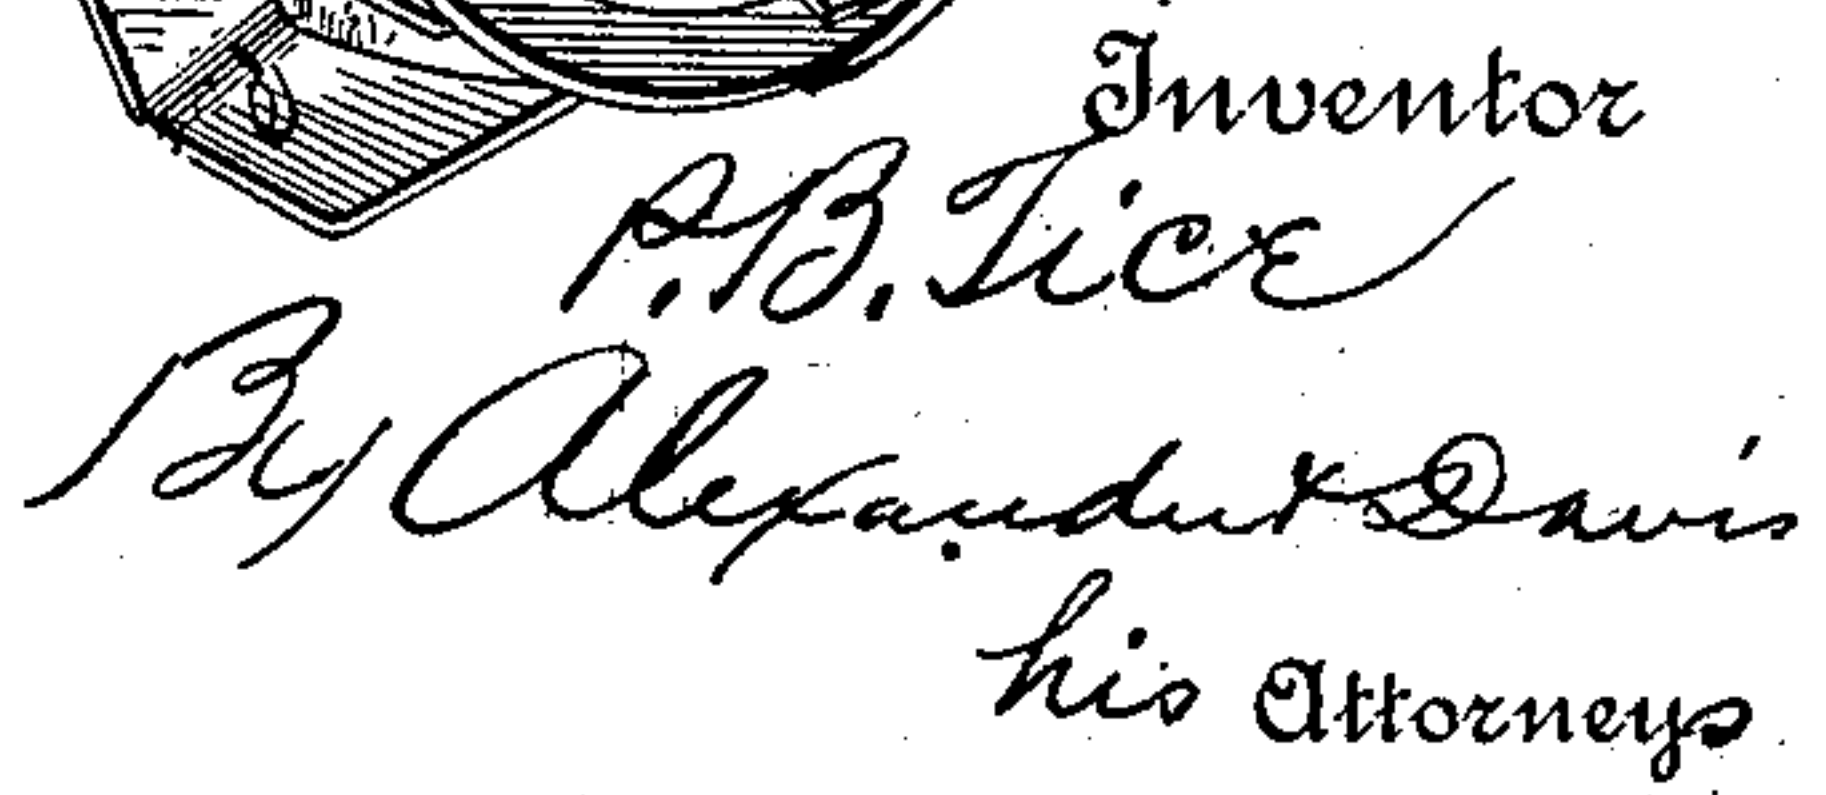 Inventor
P. B. Tice
By Alexander & Davis
his Attorneys